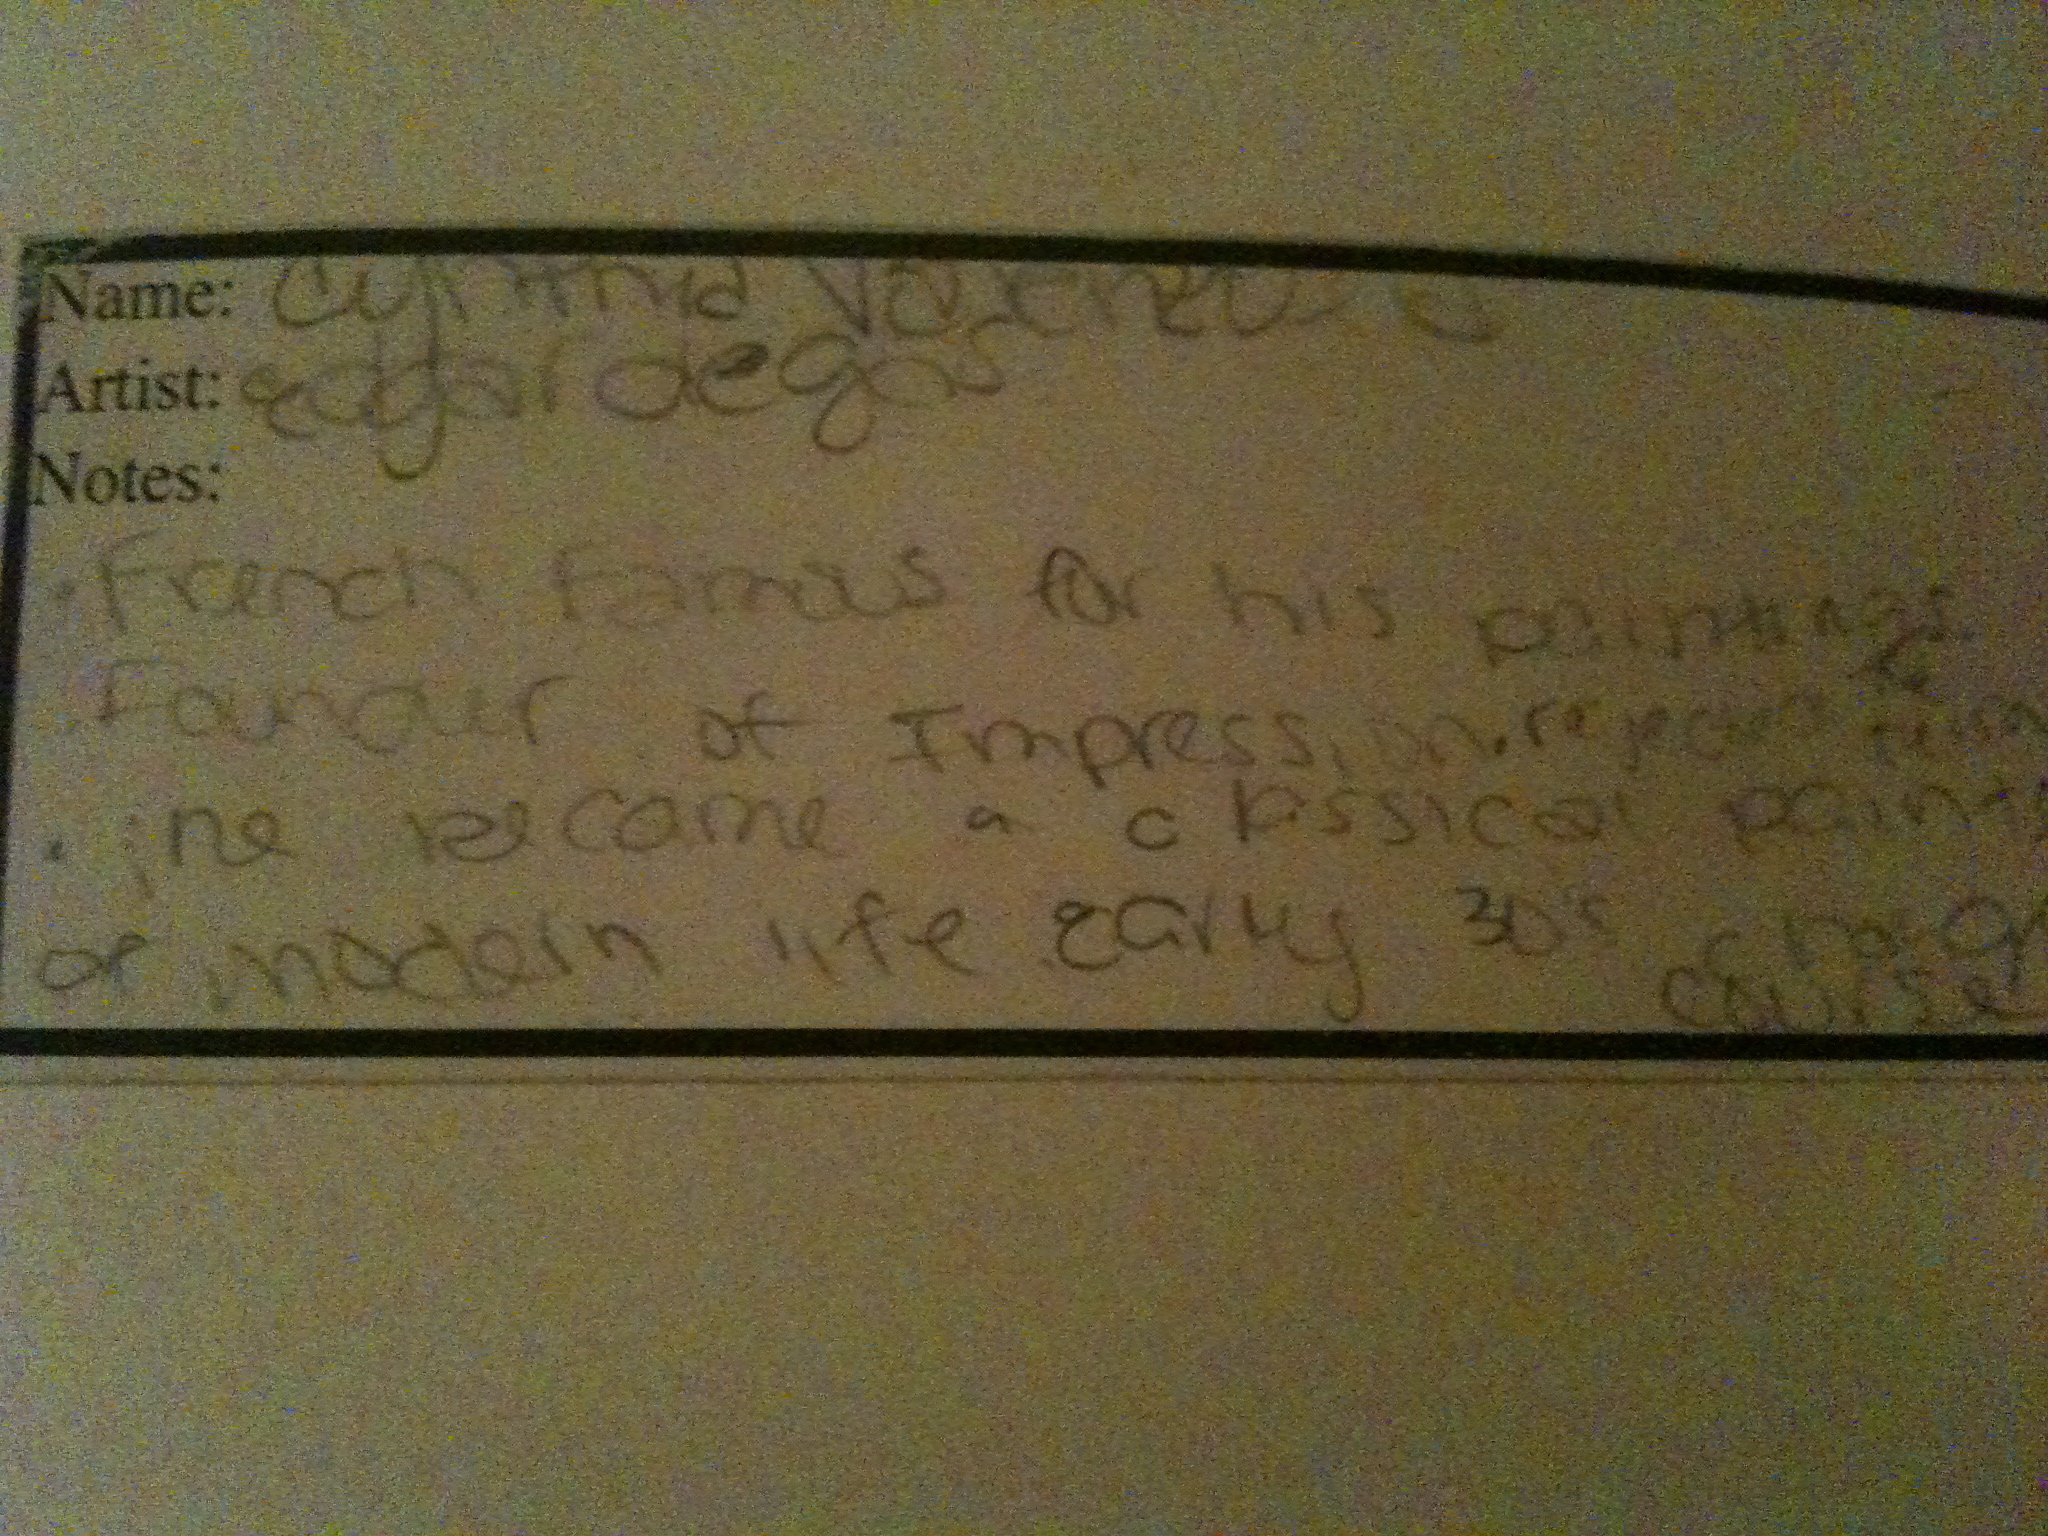 Name: Cynthia Valenzuela
Artist: edgar degas
Notes:
• French famous for his paintings
Founder of Impression. reject
• he became a classical paint
of modern life early 30's
course